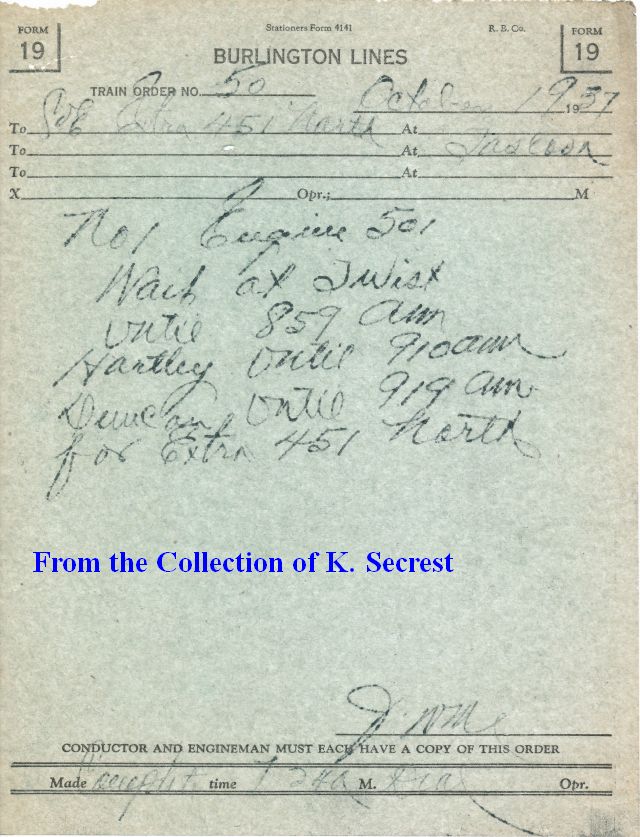 FORM 19
Stationers Form 4141
R. B. Co.
FORM 19
BURLINGTON LINES
TRAIN ORDER NO. 50
October 19 1937
To C&E Extra 451 North At
To At
To At
X Opr.; M
No 1 Engine 501
Wait at Twist
Until 859 am
Hartley Until 910 am
Duncan Until 919 am
for Extra 451 North
CONDUCTOR AND ENGINEMAN MUST EACH HAVE A COPY OF THIS ORDER
Made time M. Opr.
From the Collection of K. Secrest